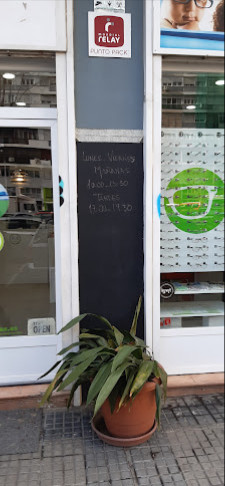 MONDIAL
RELAY
PUNTO PACK
LUNES VIERNES
MAÑANAS
10:00-13:30
TARDES
OPEN